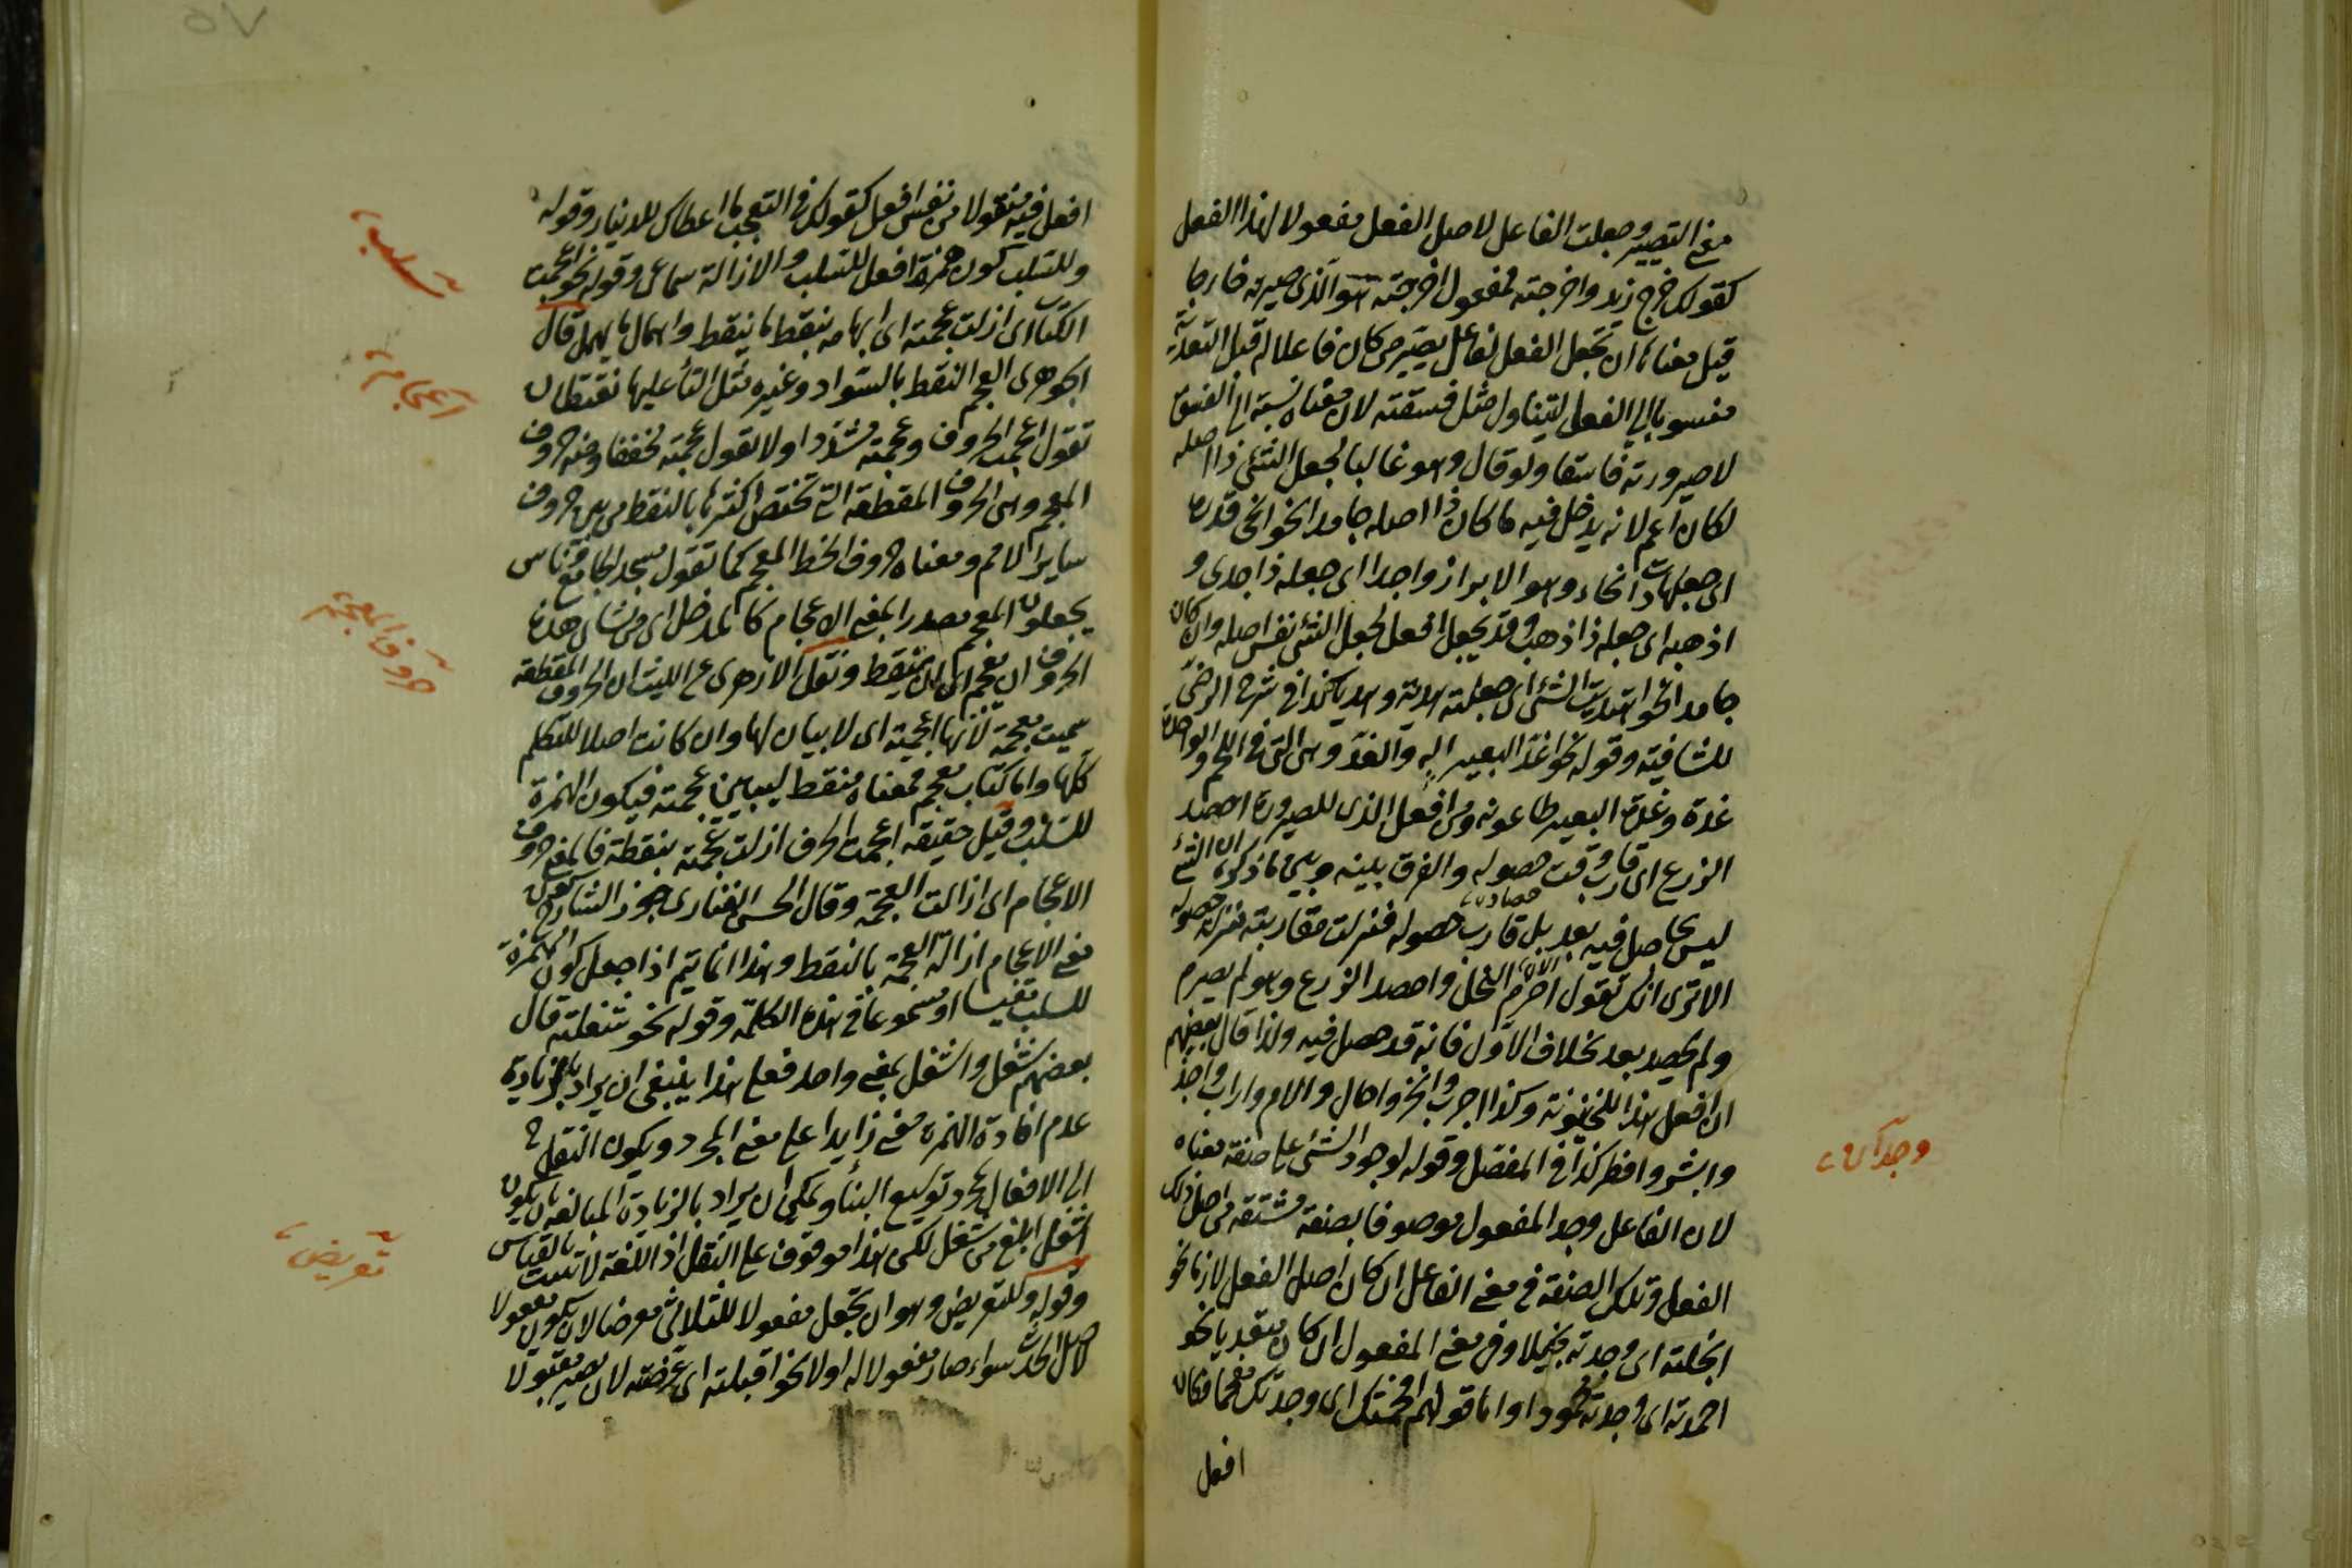 معنى التصيير وجعلت الفاعل لاصل الفعل مفعولا لهذا الفعل
كقولك خرج زيد واخرجته فمفعول اخرجته هو الذى صيرته خارجا
قيل معناها ان تجعل الفعل لفاعل يصير من كان فاعلا له قبل التعدية
منسوبا الى الفعل ليتناول مثل فسقته لان معناه نسبته الى الفسق
لا صيرورته فاسقا ولو قال وهو غالبا لجعل الشئ ذا اصله
لكان اعم لانه يدخل فيه ما كان ذا اصله جامدا نحو افحى قدره
اى جعلها ذات افحاء وهو الابراز واجدا اى جعله ذا جدى و
اذهبه اى جعله ذا ذهب وقد يجعل افعل لجعل الشئ نفس اصله وان كان
جامدا نحو اهديت الشئ اى جعلته هدية وهديا كذا فى شرح الرضى
للشافية وقوله نحو اغد البعير اله والغدد وهى التى فى اللحم والواحدة
غدة وغدة البعير طاعونه ومن افعل الذى للصيرورة احصد
الزرع اى قارب وقت حصوله والفرق بينه وبين ما ذكره ان الشئ
حصاده
ليس بحاصل فيه بعد بل قارب حصوله فنزلت مقاربته منزلة حصوله
الا ترى انك تقول اصرم النخل واحصد الزرع وهو لم يصرم
ولم يحصد بعد بخلاف الاول فانه قد حصل فيه ولذا قال بعضهم
ان افعل هذا للحينونة وكذا اجرب وانحز واحال والام واراب واجد
وابشر وافطر كذا فى المفصل وقوله لوجود الشئ على صفة معناه
لان الفاعل وجد المفعول موصوفا بصفة مشتقة من اصل ذلك
الفعل وتلك الصفة فى معنى الفاعل ان كان اصل الفعل لازما نحو
ابخلته اى وجدته بخيلا وفى معنى المفعول ان كان متعديا نحو
احمدته اى وجدته محمودا واما قولهم افحمتك اى وجدتك مفحما فكان
افعل
وجدان
افعل فيه منقولا من نفس افعل كقولك فى التعجب ما اعطاك للدينار وقوله
وللسلب كون همزة افعل للسلب والازالة سماعى وقوله نحو اعجمت
الكتاب اى ازلت عجمته اى ابهامه بنقط ما ينقط واهمال ما يهمل قال
الجوهرى العجم النقط بالسواد وغيره مثل التاء عليها نقطتان
تقول اعجمت الحروف وعجمته مشددا ولا تقول عجمته مخففا ومنه حروف
المعجم وهى الحروف المقطعة التى تختص اكثرها بالنقط من بين حروف
ساير الامم ومعناه حروف الخط المعجم كما تقول مسجد الجامع وناس
يجعلون المعجم مصدرا بمعنى الاعجام كالمدخل اى من شان هذه
الحروف ان تعجم اى ان تنقط ونقل الازهرى عن الليث ان الحروف المقطعة
سميت معجمة لانها اعجمية اى لا بيان لها وان كانت اصلا للتكلم
كلها واما كتاب معجم فمعناه منقط ليبين عجمته فيكون الهمزة
للسلب وقيل حقيقة اعجمت الحرف ازلت عجمته بنقطة فالمعنى حروف
الاعجام اى ازالت العجمة وقال الحسن الفنارى جوز الشارح كون
معنى الاعجام ازالة العجمة بالنقط وهذا انما يتم اذا جعل كون الهمزة
للسلب مقيسا او مسموعا فى هذه الكلمة وقوله نحو شغلته قال
بعضهم شغل واشغل بمعنى واحد فعلى هذا ينبغى ان يراد بالزيادة
عدم افادة الهمزة معنى زايدا على معنى المجرد ويكون النقل ح
الى الافعال لمجرد توسيع البناء ويمكن ان يراد بالزيادة المبالغة بان يكون
اشغل ابلغ من شغل لكن هذا موقوف على النقل اذ اللغة لا تثبت بالقياس
وقوله وللتعريض وهو ان تجعل مفعولا للثلاثى معرضا لان يكون مفعولا
لاصل الحدث سواء صار مفعولا له او لا نحو اقبلته اى عرضته لان يصير مقبولا
سلب
اعجام
حروف المعجمة
تعريض